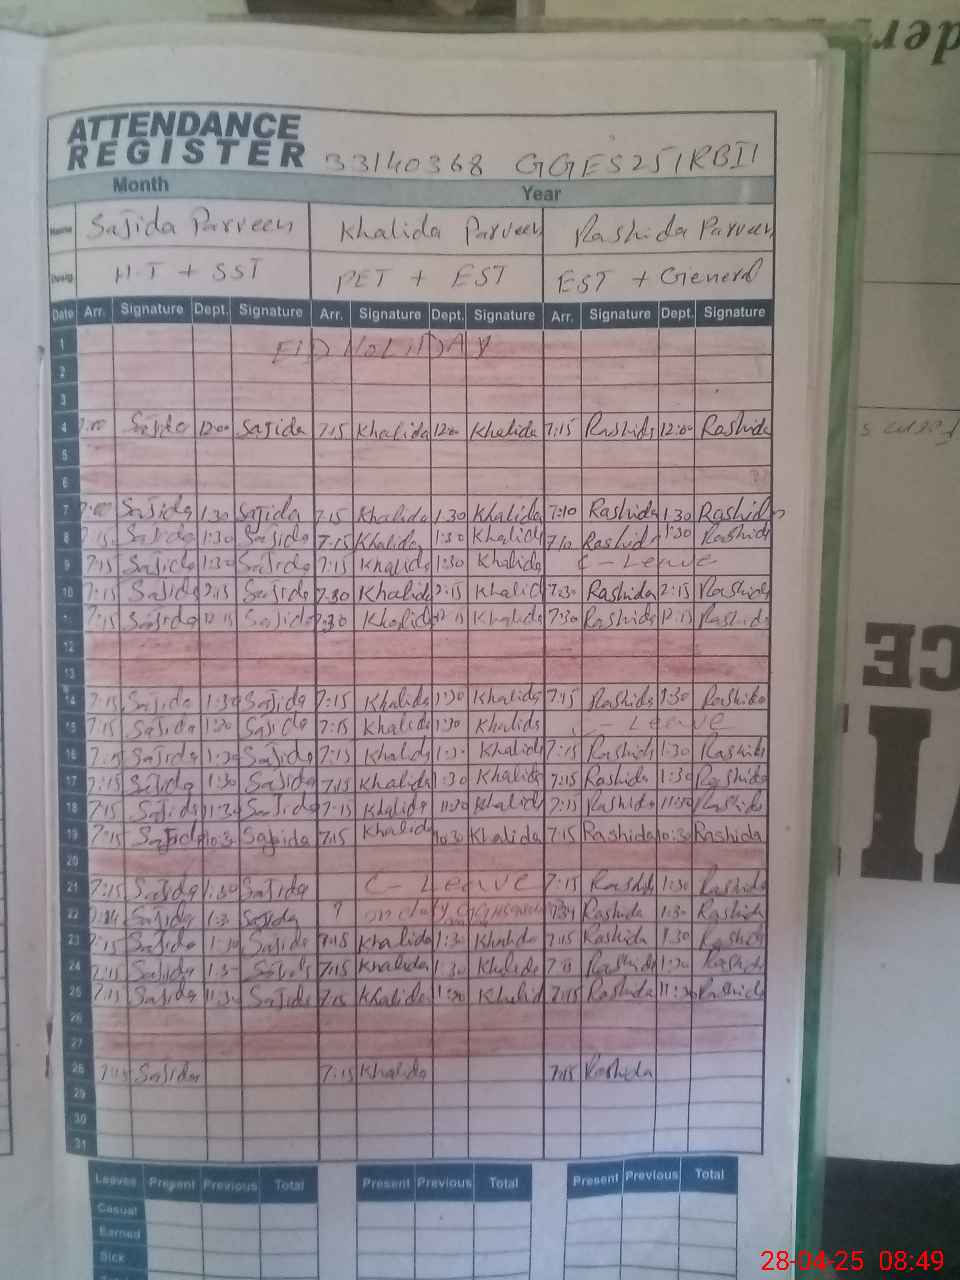 ATTENDANCE
REGISTER 33140368 GGES 251RBII
Month Year
Name Sajida Parveen Khalida Parveen Rashida Parveen
Desig H-T + SST PET + EST EST + General
Date Arr. Signature Dept. Signature Arr. Signature Dept. Signature Arr. Signature Dept. Signature
1 EID HOLIDAY
2
3
4 Sajida 12:00 Sajida 7:15 Khalida 12:00 Khalida 7:15 Rashida 12:00 Rashida
5
6
7 7:00 Sajida 1:30 Sajida 7:15 Khalida 1:30 Khalida 7:10 Rashida 1:30 Rashida
8 7:15 Sajida 1:30 Sajida 7:15 Khalida 1:30 Khalida 7:10 Rashida 1:30 Rashida
9 7:15 Sajida 1:30 Sajida 7:15 Khalida 1:30 Khalida C-Leave
10 7:15 Sajida 2:15 Sajida 7:30 Khalida 2:15 Khalida 7:30 Rashida 2:15 Rashida
11 7:15 Sajida 12:15 Sajida 7:30 Khalida 12:15 Khalida 7:30 Rashida 12:15 Rashida
12
13
14 7:15 Sajida 1:30 Sajida 7:15 Khalida 1:30 Khalida 7:15 Rashida 1:30 Rashida
15 7:15 Sajida 1:30 Sajida 7:15 Khalida 1:30 Khalida C-Leave
16 7:15 Sajida 1:30 Sajida 7:15 Khalida 1:30 Khalida 7:15 Rashida 1:30 Rashida
17 7:15 Sajida 1:30 Sajida 7:15 Khalida 1:30 Khalida 7:15 Rashida 1:30 Rashida
18 7:15 Sajida 11:30 Sajida 7:15 Khalida 11:30 Khalida 7:15 Rashida 11:30 Rashida
19 7:15 Sajida 10:30 Sajida 7:15 Khalida 10:30 Khalida 7:15 Rashida 10:30 Rashida
20
21 7:15 Sajida 1:30 Sajida C-Leave 7:15 Rashida 1:30 Rashida
22 Sajida 1:30 Sajida on duty Rashida 1:30 Rashida
23 7:15 Sajida 1:30 Sajida 7:15 Khalida 1:30 Khalida 7:15 Rashida 1:30 Rashida
24 7:15 Sajida 1:30 Sajida 7:15 Khalida 1:30 Khalida 7:15 Rashida 1:30 Rashida
25 7:15 Sajida 11:30 Sajida 7:15 Khalida 11:30 Khalida 7:15 Rashida 11:30 Rashida
26
27
28 7:15 Sajida 7:15 Khalida 7:15 Rashida
29
30
31
Leaves Present Previous Total Present Previous Total Present Previous Total
Casual
Earned
Sick
28-04-25 08:49